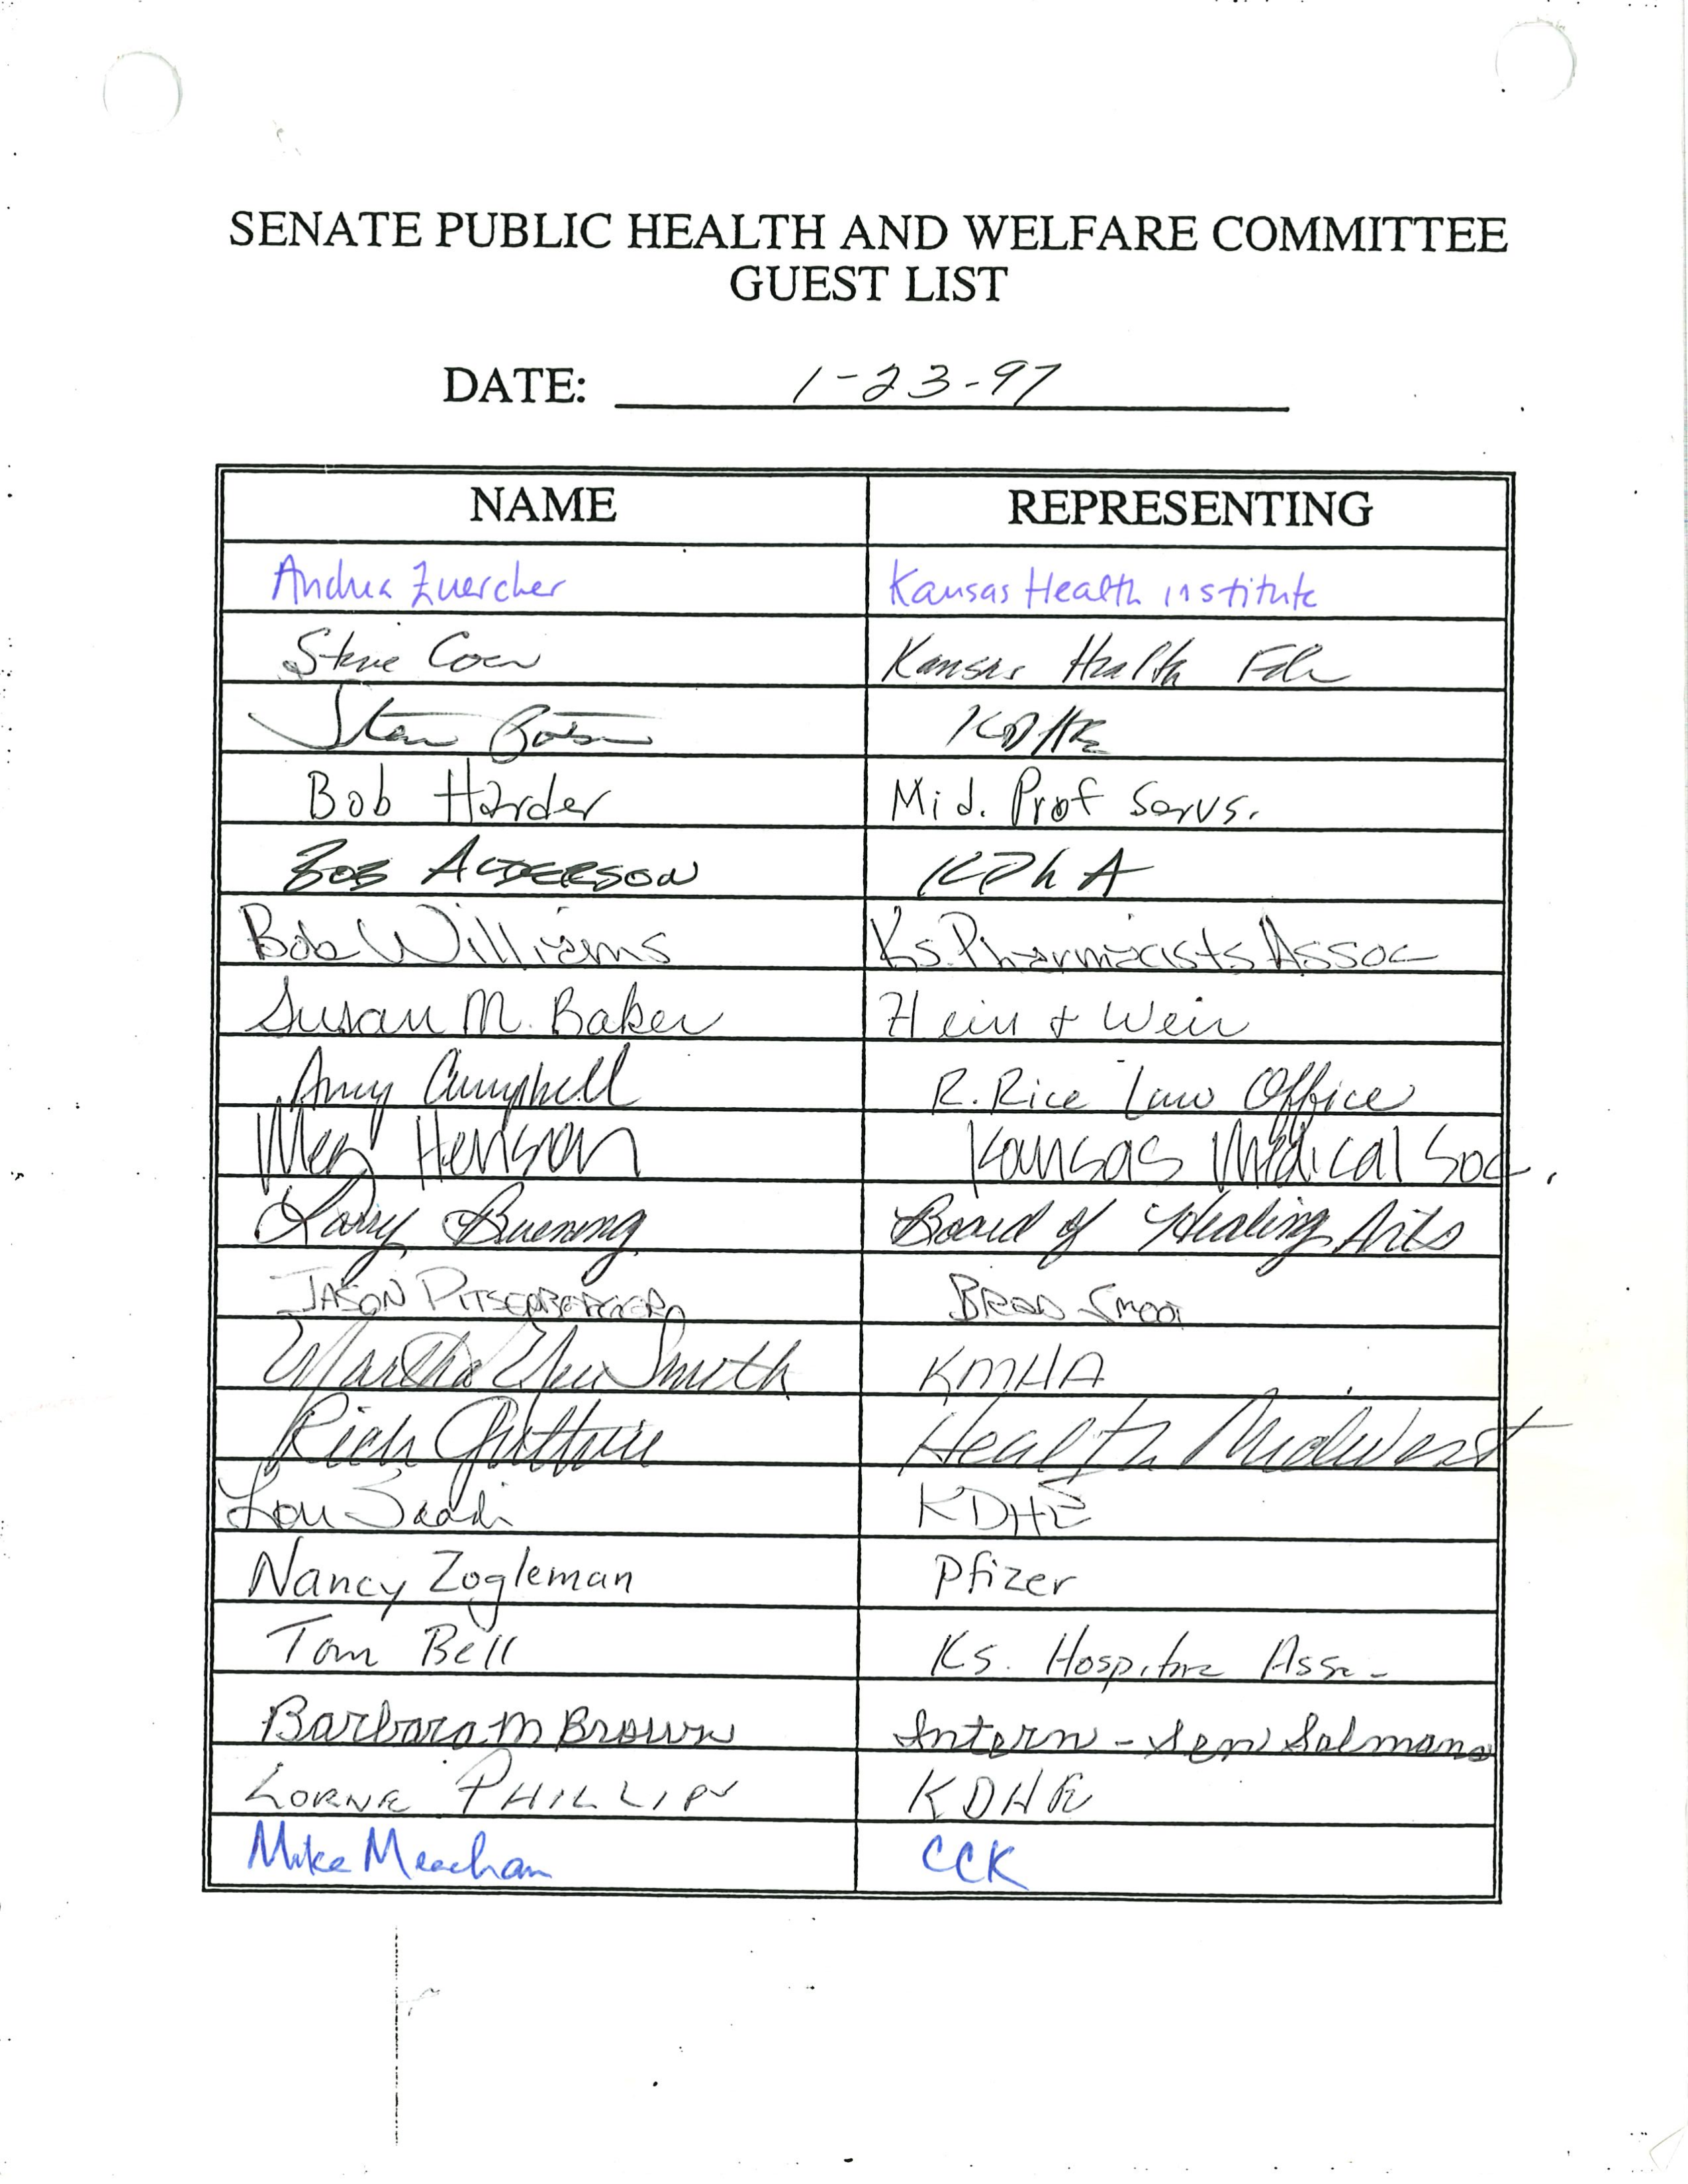 SENATE PUBLIC HEALTH AND WELFARE COMMITTEE
GUEST LIST
DATE: 1-23-97
NAME REPRESENTING
Andrea Zuercher Kansas Health institute
Steve Coen Kansas Health Fdn
KDHE
Bob Harder Mid. Prof Servs.
BOB ALDERSON KPhA
Bob Williams Ks. Pharmacists Assoc
Susan M. Baker Hein + Weir
Amy Campbell R. Rice Law Office
Meg Henson Kansas Medical Soc.
Larry Buening Board of Healing Arts
JASON PITSENBERGER BRAD SMOOT
Martha Neu Smith KMHA
Rich Guthrie Health Midwest
Lou Saadi KDHE
Nancy Zogleman Pfizer
Tom Bell Ks. Hospital Assn.
Barbara M Brown Intern - Sen Salmans
LORNE PHILLIPS KDHE
Mike Meacham CCK